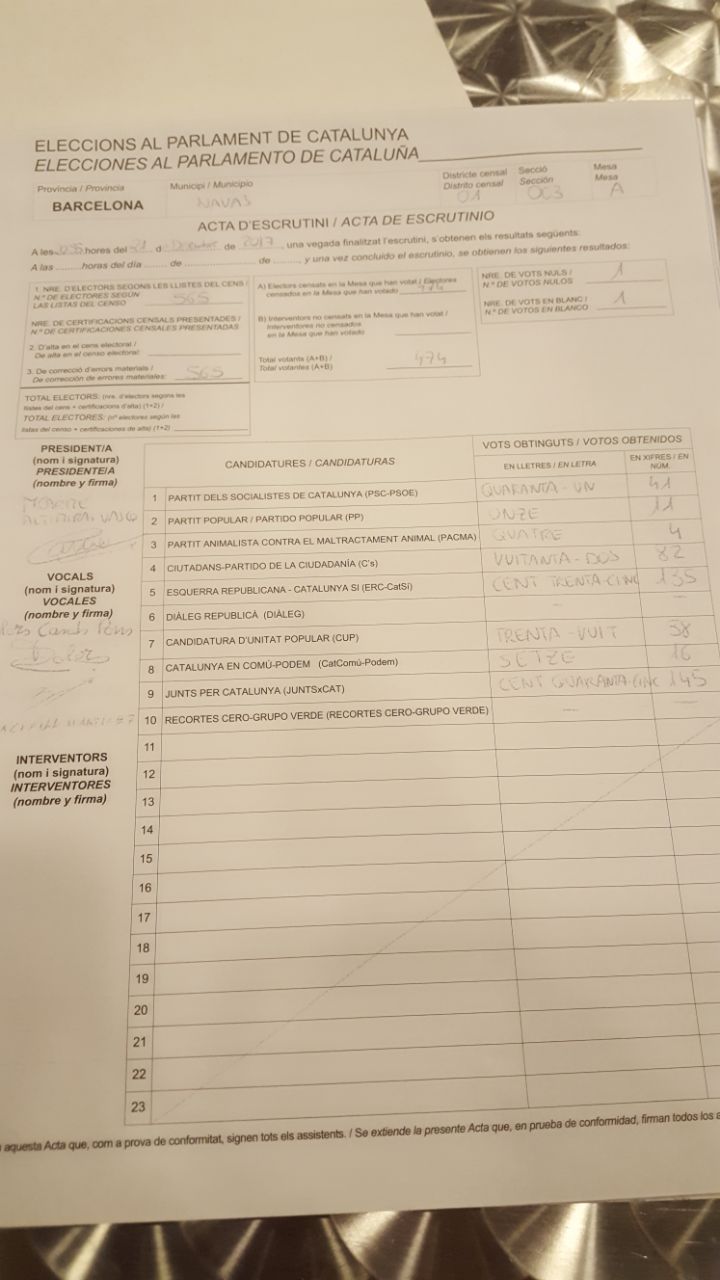 ELECCIONS AL PARLAMENT DE CATALUNYA
ELECCIONES AL PARLAMENTO DE CATALUÑA
Província / Provincia
Municipi / Municipio
Districte censal
Distrito censal
Secció
Sección
Mesa
Mesa
BARCELONA
NAVAS
01
003
A
ACTA D'ESCRUTINI / ACTA DE ESCRUTINIO
A les hores del 21 d Desembre de 2017, una vegada finalitzat l'escrutini, s'obtenen els resultats següents:
A las ......... horas del día ....... de .................... de ........., y una vez concluido el escrutinio, se obtienen los siguientes resultados:
1. NRE. D'ELECTORS SEGONS LES LLISTES DEL CENS /
N.º DE ELECTORES SEGÚN
LAS LISTAS DEL CENSO 565
NRE. DE CERTIFICACIONS CENSALS PRESENTADES /
N.º DE CERTIFICACIONES CENSALES PRESENTADAS
2. D'alta en el cens electoral /
De alta en el censo electoral:
3. De correcció d'errors materials /
De corrección de errores materiales: 565
TOTAL ELECTORS: (nre. d'electors segons les
llistes del cens + certificacions d'alta) (1+2) /
TOTAL ELECTORES: (nº electores según las
listas del censo + certificaciones de alta) (1+2)
A) Electors censats en la Mesa que han votat / Electores
censados en la Mesa que han votado 474
B) Interventors no censats en la Mesa que han votat /
Interventores no censados
en la Mesa que han votado
Total votants (A+B) /
Total votantes (A+B) 474
NRE. DE VOTS NULS /
N.º DE VOTOS NULOS 1
NRE. DE VOTS EN BLANC /
N.º DE VOTOS EN BLANCO 1
PRESIDENT/A
(nom i signatura)
PRESIDENTE/A
(nombre y firma)
VOCALS
(nom i signatura)
VOCALES
(nombre y firma)
INTERVENTORS
(nom i signatura)
INTERVENTORES
(nombre y firma)
CANDIDATURES / CANDIDATURAS
VOTS OBTINGUTS / VOTOS OBTENIDOS
EN LLETRES / EN LETRA
EN XIFRES / EN
NÚM.
1 PARTIT DELS SOCIALISTES DE CATALUNYA (PSC-PSOE) QUARANTA-UN 41
2 PARTIT POPULAR / PARTIDO POPULAR (PP) ONZE 11
3 PARTIT ANIMALISTA CONTRA EL MALTRACTAMENT ANIMAL (PACMA) QUATRE 4
4 CIUTADANS-PARTIDO DE LA CIUDADANÍA (C's) VUITANTA-DOS 82
5 ESQUERRA REPUBLICANA - CATALUNYA SÍ (ERC-CatSí) CENT TRENTA-CINC 135
6 DIÀLEG REPUBLICÀ (DIÀLEG) — —
7 CANDIDATURA D'UNITAT POPULAR (CUP) TRENTA-VUIT 38
8 CATALUNYA EN COMÚ-PODEM (CatComú-Podem) SETZE 16
9 JUNTS PER CATALUNYA (JUNTSxCAT) CENT QUARANTA-CINC 145
10 RECORTES CERO-GRUPO VERDE (RECORTES CERO-GRUPO VERDE) — —
11
12
13
14
15
16
17
18
19
20
21
22
23
aquesta Acta que, com a prova de conformitat, signen tots els assistents. / Se extiende la presente Acta que, en prueba de conformidad, firman todos los